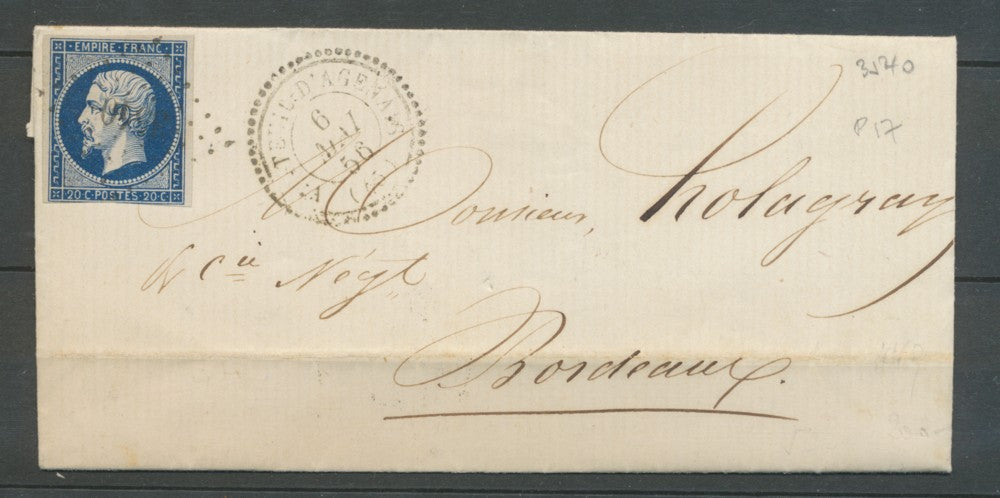 EMPIRE FRANC
20 C · POSTES · 20 C
D'AGENAIS
6
MAI
56
3240
P 17
Monsieur, Holagray
& Cie Négt
Bordeaux.